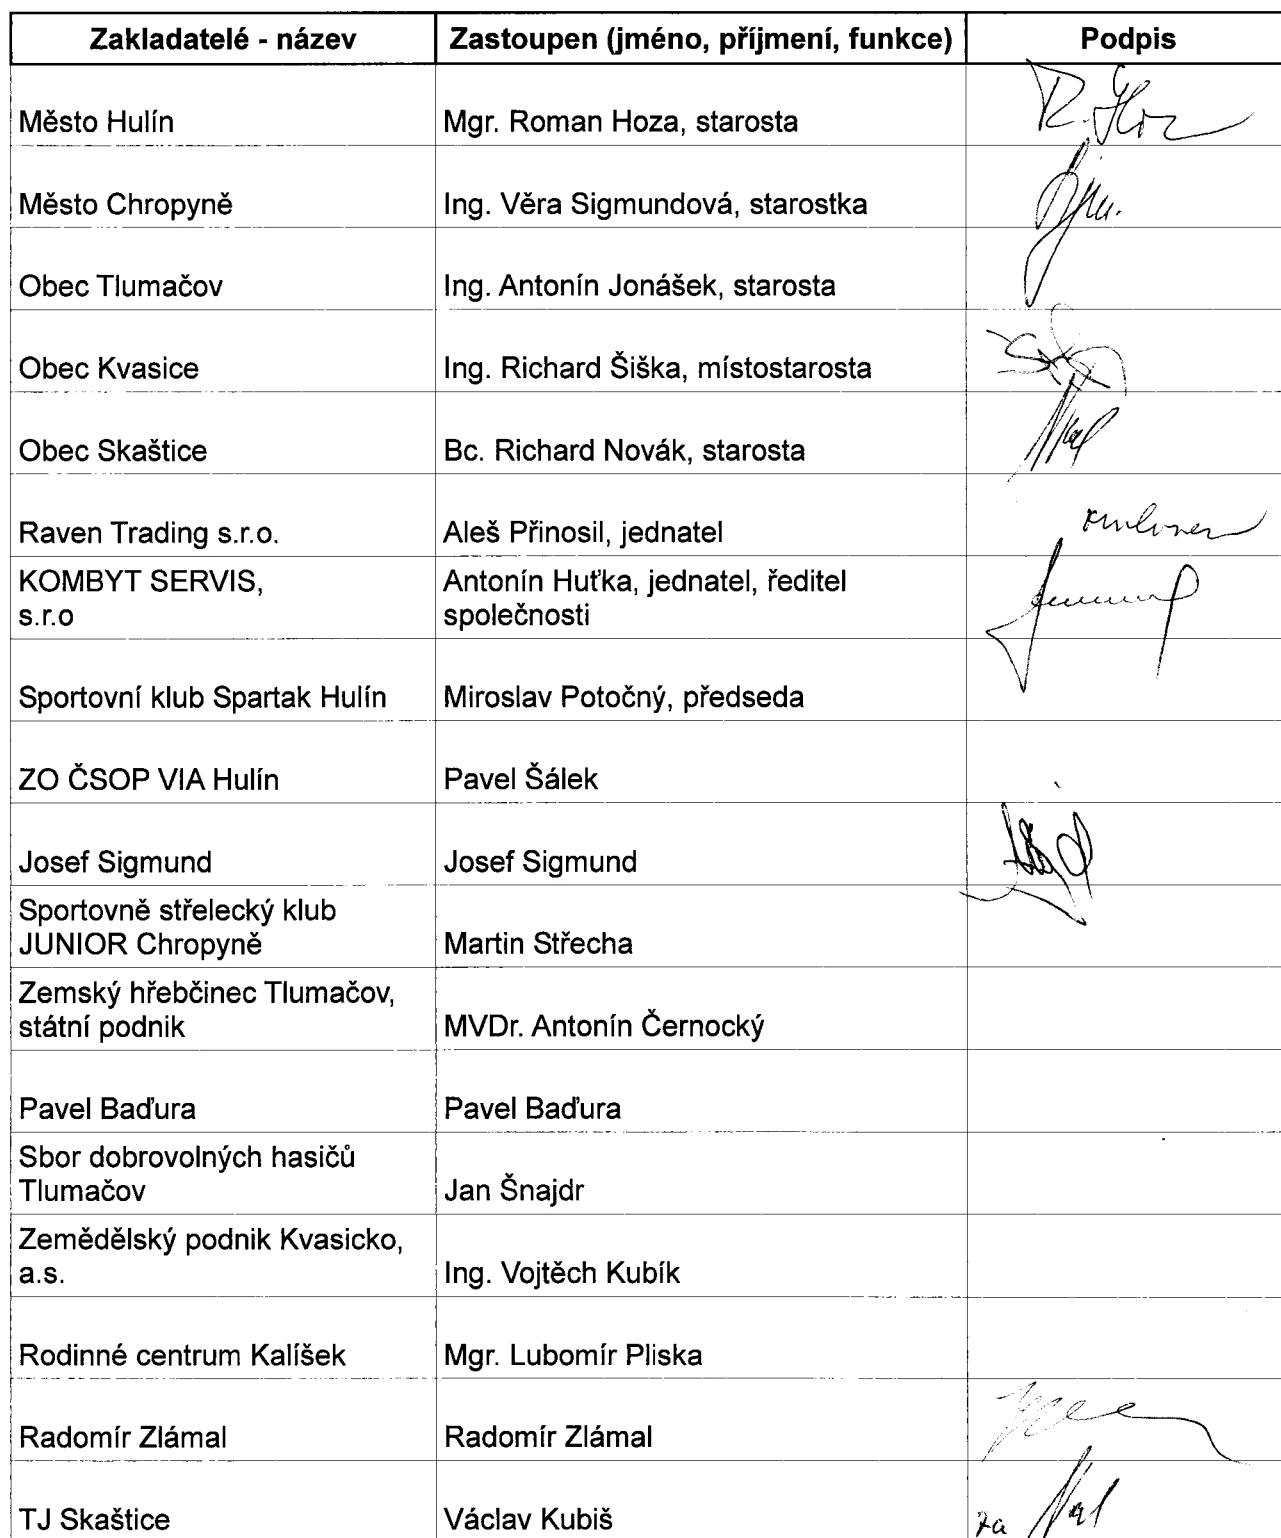 Zakladatelé - název Zastoupen (jméno, příjmení, funkce) Podpis
Město Hulín Mgr. Roman Hoza, starosta
Město Chropyně Ing. Věra Sigmundová, starostka
Obec Tlumačov Ing. Antonín Jonášek, starosta
Obec Kvasice Ing. Richard Šiška, místostarosta
Obec Skaštice Bc. Richard Novák, starosta
Raven Trading s.r.o. Aleš Přinosil, jednatel
KOMBYT SERVIS,
s.r.o
Antonín Huťka, jednatel, ředitel
společnosti
Sportovní klub Spartak Hulín Miroslav Potočný, předseda
ZO ČSOP VIA Hulín Pavel Šálek
Josef Sigmund Josef Sigmund
Sportovně střelecký klub
JUNIOR Chropyně Martin Střecha
Zemský hřebčinec Tlumačov,
státní podnik MVDr. Antonín Černocký
Pavel Baďura Pavel Baďura
Sbor dobrovolných hasičů
Tlumačov Jan Šnajdr
Zemědělský podnik Kvasicko,
a.s. Ing. Vojtěch Kubík
Rodinné centrum Kalíšek Mgr. Lubomír Pliska
Radomír Zlámal Radomír Zlámal
TJ Skaštice Václav Kubiš za